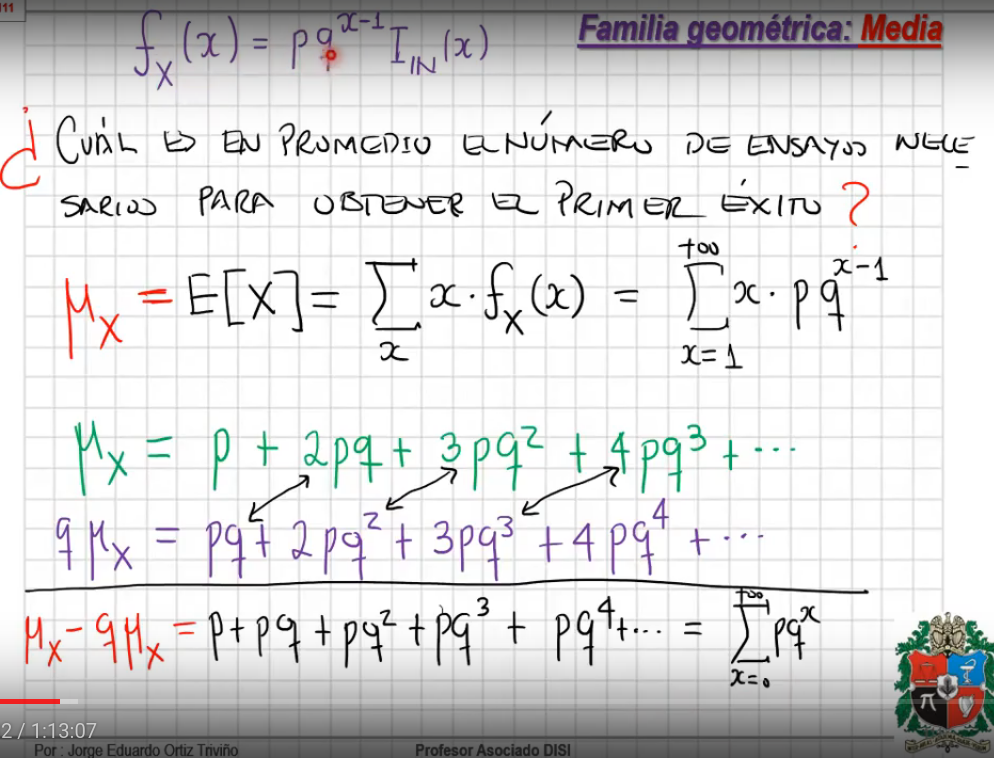 111
f_X(x) = pq^{x-1} I_{IN}(x)
Familia geométrica: Media
¿CUÁL ES EN PROMEDIO EL NÚMERO DE ENSAYOS NECE
SARIOS PARA OBTENER EL PRIMER ÉXITO?
μ_X = E[X] = ∑_x x · f_X(x) = ∑_{x=1}^{+∞} x · pq^{x-1}
μ_X = p + 2pq + 3pq² + 4pq³ + ⋯
qμ_X = pq + 2pq² + 3pq³ + 4pq⁴ + ⋯
μ_X - qμ_X = p + pq + pq² + pq³ + pq⁴ + ... = ∑_{x=0}^{+∞} pq^x
2 / 1:13:07
Por : Jorge Eduardo Ortiz Triviño
Profesor Asociado DISI